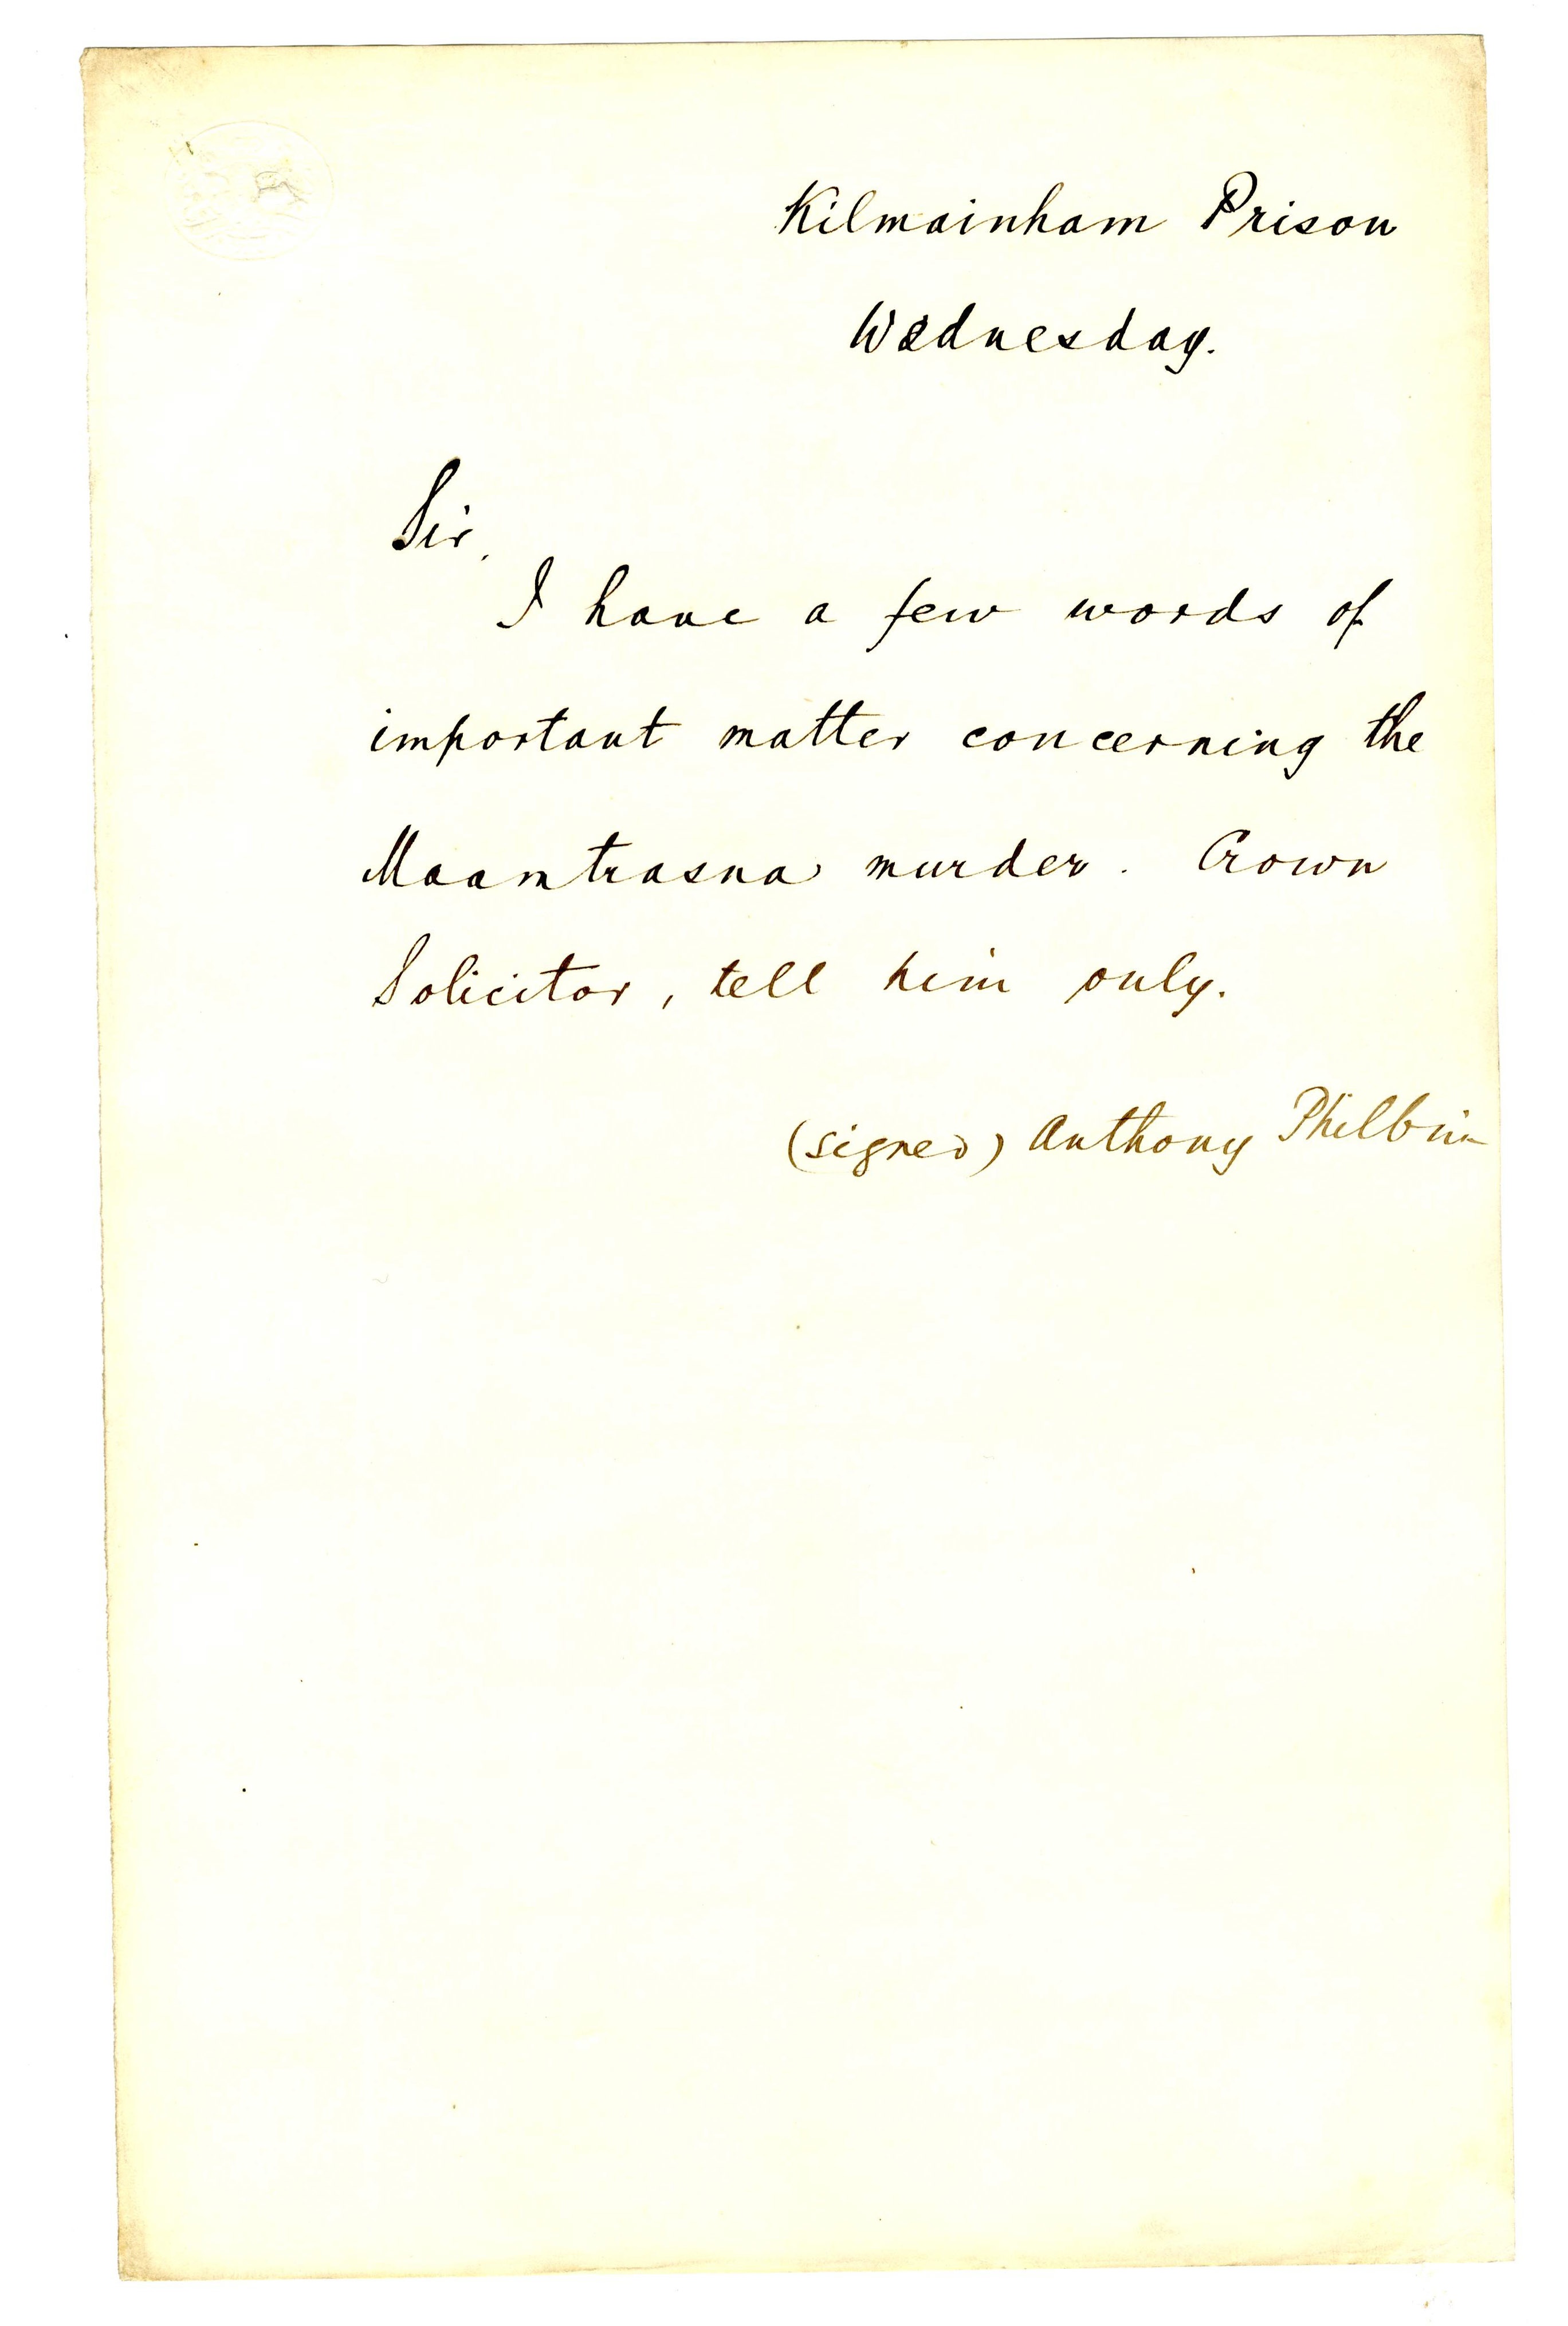 Kilmainham Prison
Wednesday.
Sir,
I have a few words of
important matter concerning the
Maamtrasna murder. Crown
Solicitor, tell him only.
(signed) Anthony Philbin